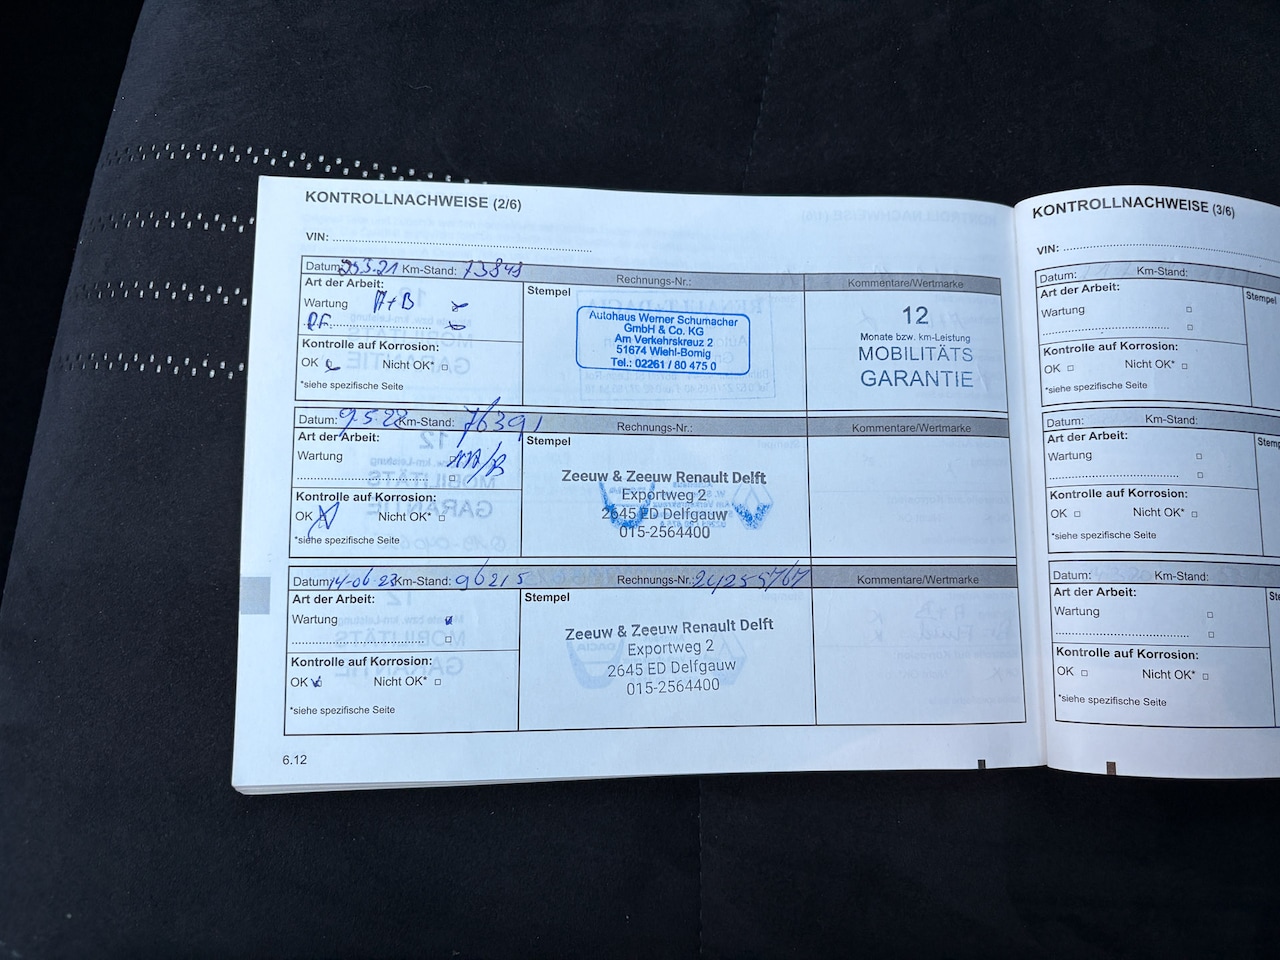 KONTROLLNACHWEISE (2/6)
VIN:
Datum: Km-Stand: 73849 Rechnungs-Nr.: Kommentare/Wertmarke
Art der Arbeit:
Wartung A+B
Stempel
Autohaus Werner Schumacher
GmbH & Co. KG
Am Verkehrskreuz 2
51674 Wiehl-Bomig
Tel.: 02261 / 80 475 0
12
Monate bzw. km-Leistung
MOBILITÄTS
GARANTIE
Kontrolle auf Korrosion:
OK Nicht OK*
*siehe spezifische Seite
Datum: 9.5.22 Km-Stand: 76391 Rechnungs-Nr.: Kommentare/Wertmarke
Art der Arbeit:
Wartung
Stempel
Zeeuw & Zeeuw Renault Delft
Exportweg 2
2645 ED Delfgauw
015-2564400
Kontrolle auf Korrosion:
OK Nicht OK*
*siehe spezifische Seite
Datum: 14-06-23 Km-Stand: 96215 Rechnungs-Nr.: 24255767 Kommentare/Wertmarke
Art der Arbeit:
Wartung
Stempel
Zeeuw & Zeeuw Renault Delft
Exportweg 2
2645 ED Delfgauw
015-2564400
Kontrolle auf Korrosion:
OK Nicht OK*
*siehe spezifische Seite
6.12
KONTROLLNACHWEISE (3/6)
VIN:
Datum: Km-Stand:
Art der Arbeit:
Stempel
Wartung
Kontrolle auf Korrosion:
OK Nicht OK*
*siehe spezifische Seite
Datum: Km-Stand:
Art der Arbeit:
Wartung
Kontrolle auf Korrosion:
OK Nicht OK*
*siehe spezifische Seite
Datum: Km-Stand:
Art der Arbeit:
Wartung
Kontrolle auf Korrosion:
OK Nicht OK*
*siehe spezifische Seite